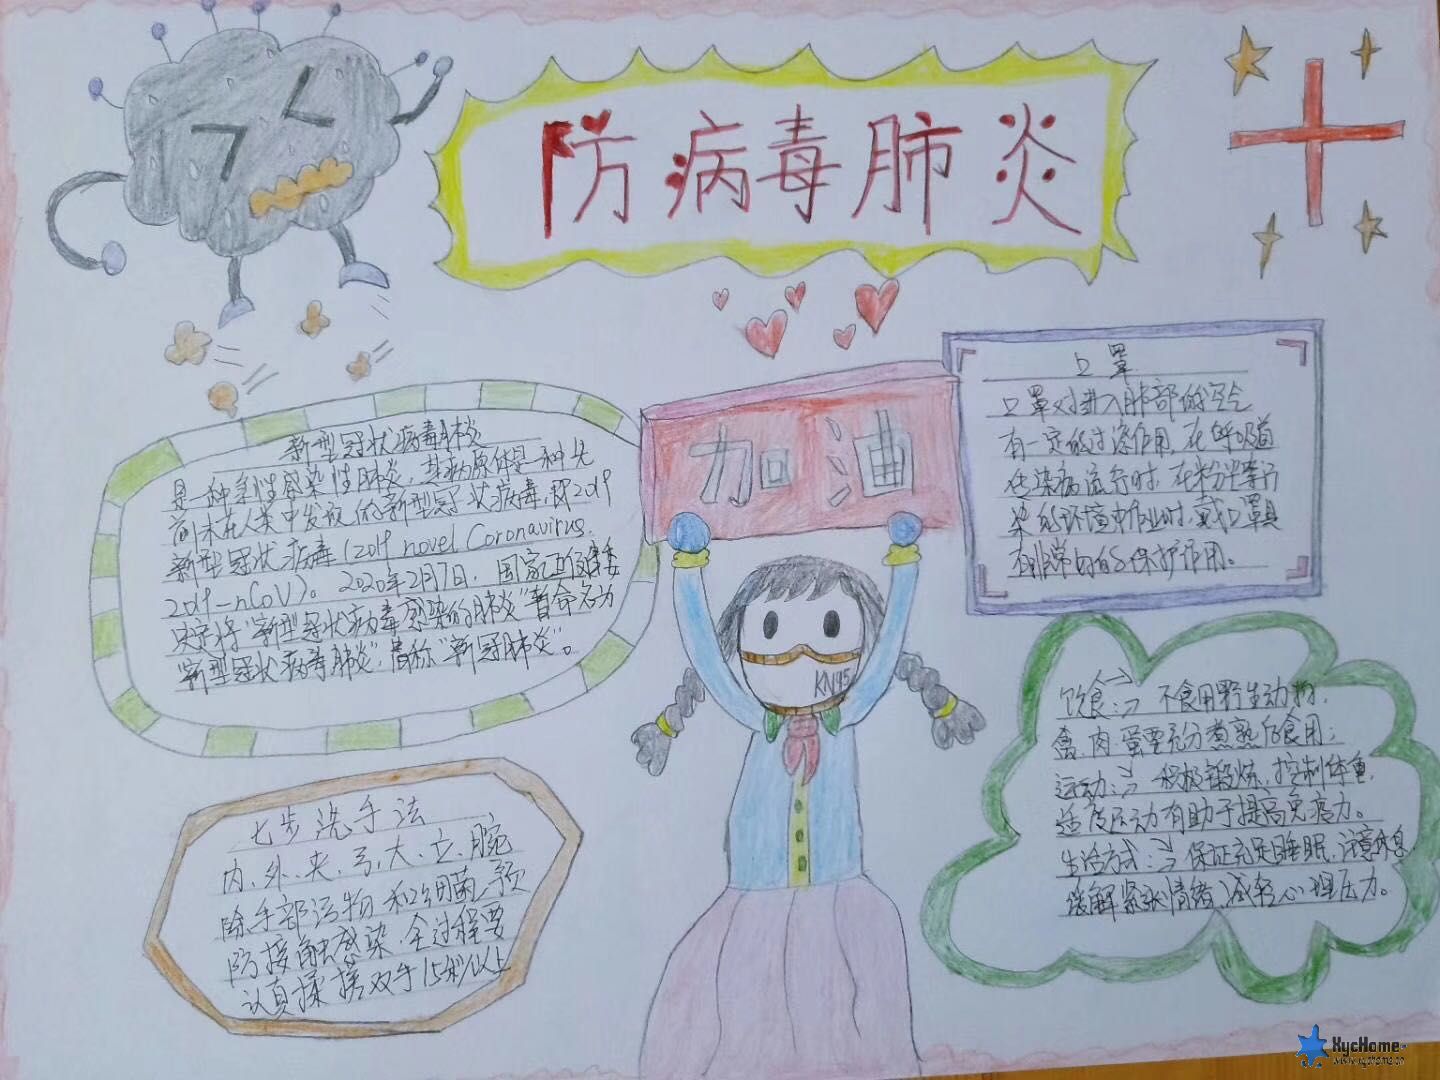 防病毒肺炎
加油
新型冠状病毒肺炎
是一种急性感染性肺炎，其病原体是一种先
前未在人类中发现的新型冠状病毒，既2019
新型冠状病毒（2019 novel Coronavirus.
2019-nCoV）。2020年2月7日，国家卫健委
决定将“新型冠状病毒感染的肺炎”暂命名为
“新型冠状病毒肺炎”，简称“新冠肺炎”。
口罩
口罩对进入肺部的空气
有一定的过滤作用，在呼吸道
传染病流行时，在粉尘等污
染的环境中作业时，戴口罩具
有非常好的保护作用。
KN95
七步洗手法
内、外、夹、弓、大、立、腕
除手部污物和细菌，预
防接触感染，全过程要
认真揉搓双手15秒以上
饮食：→不食用野生动物，
禽、肉、蛋要充分煮熟后食用；
运动：→积极锻炼，控制体重，
适度运动有助于提高免疫力。
生活方式：→保证充足睡眠，注意休息
缓解紧张情绪，减轻心理压力。
KycHome